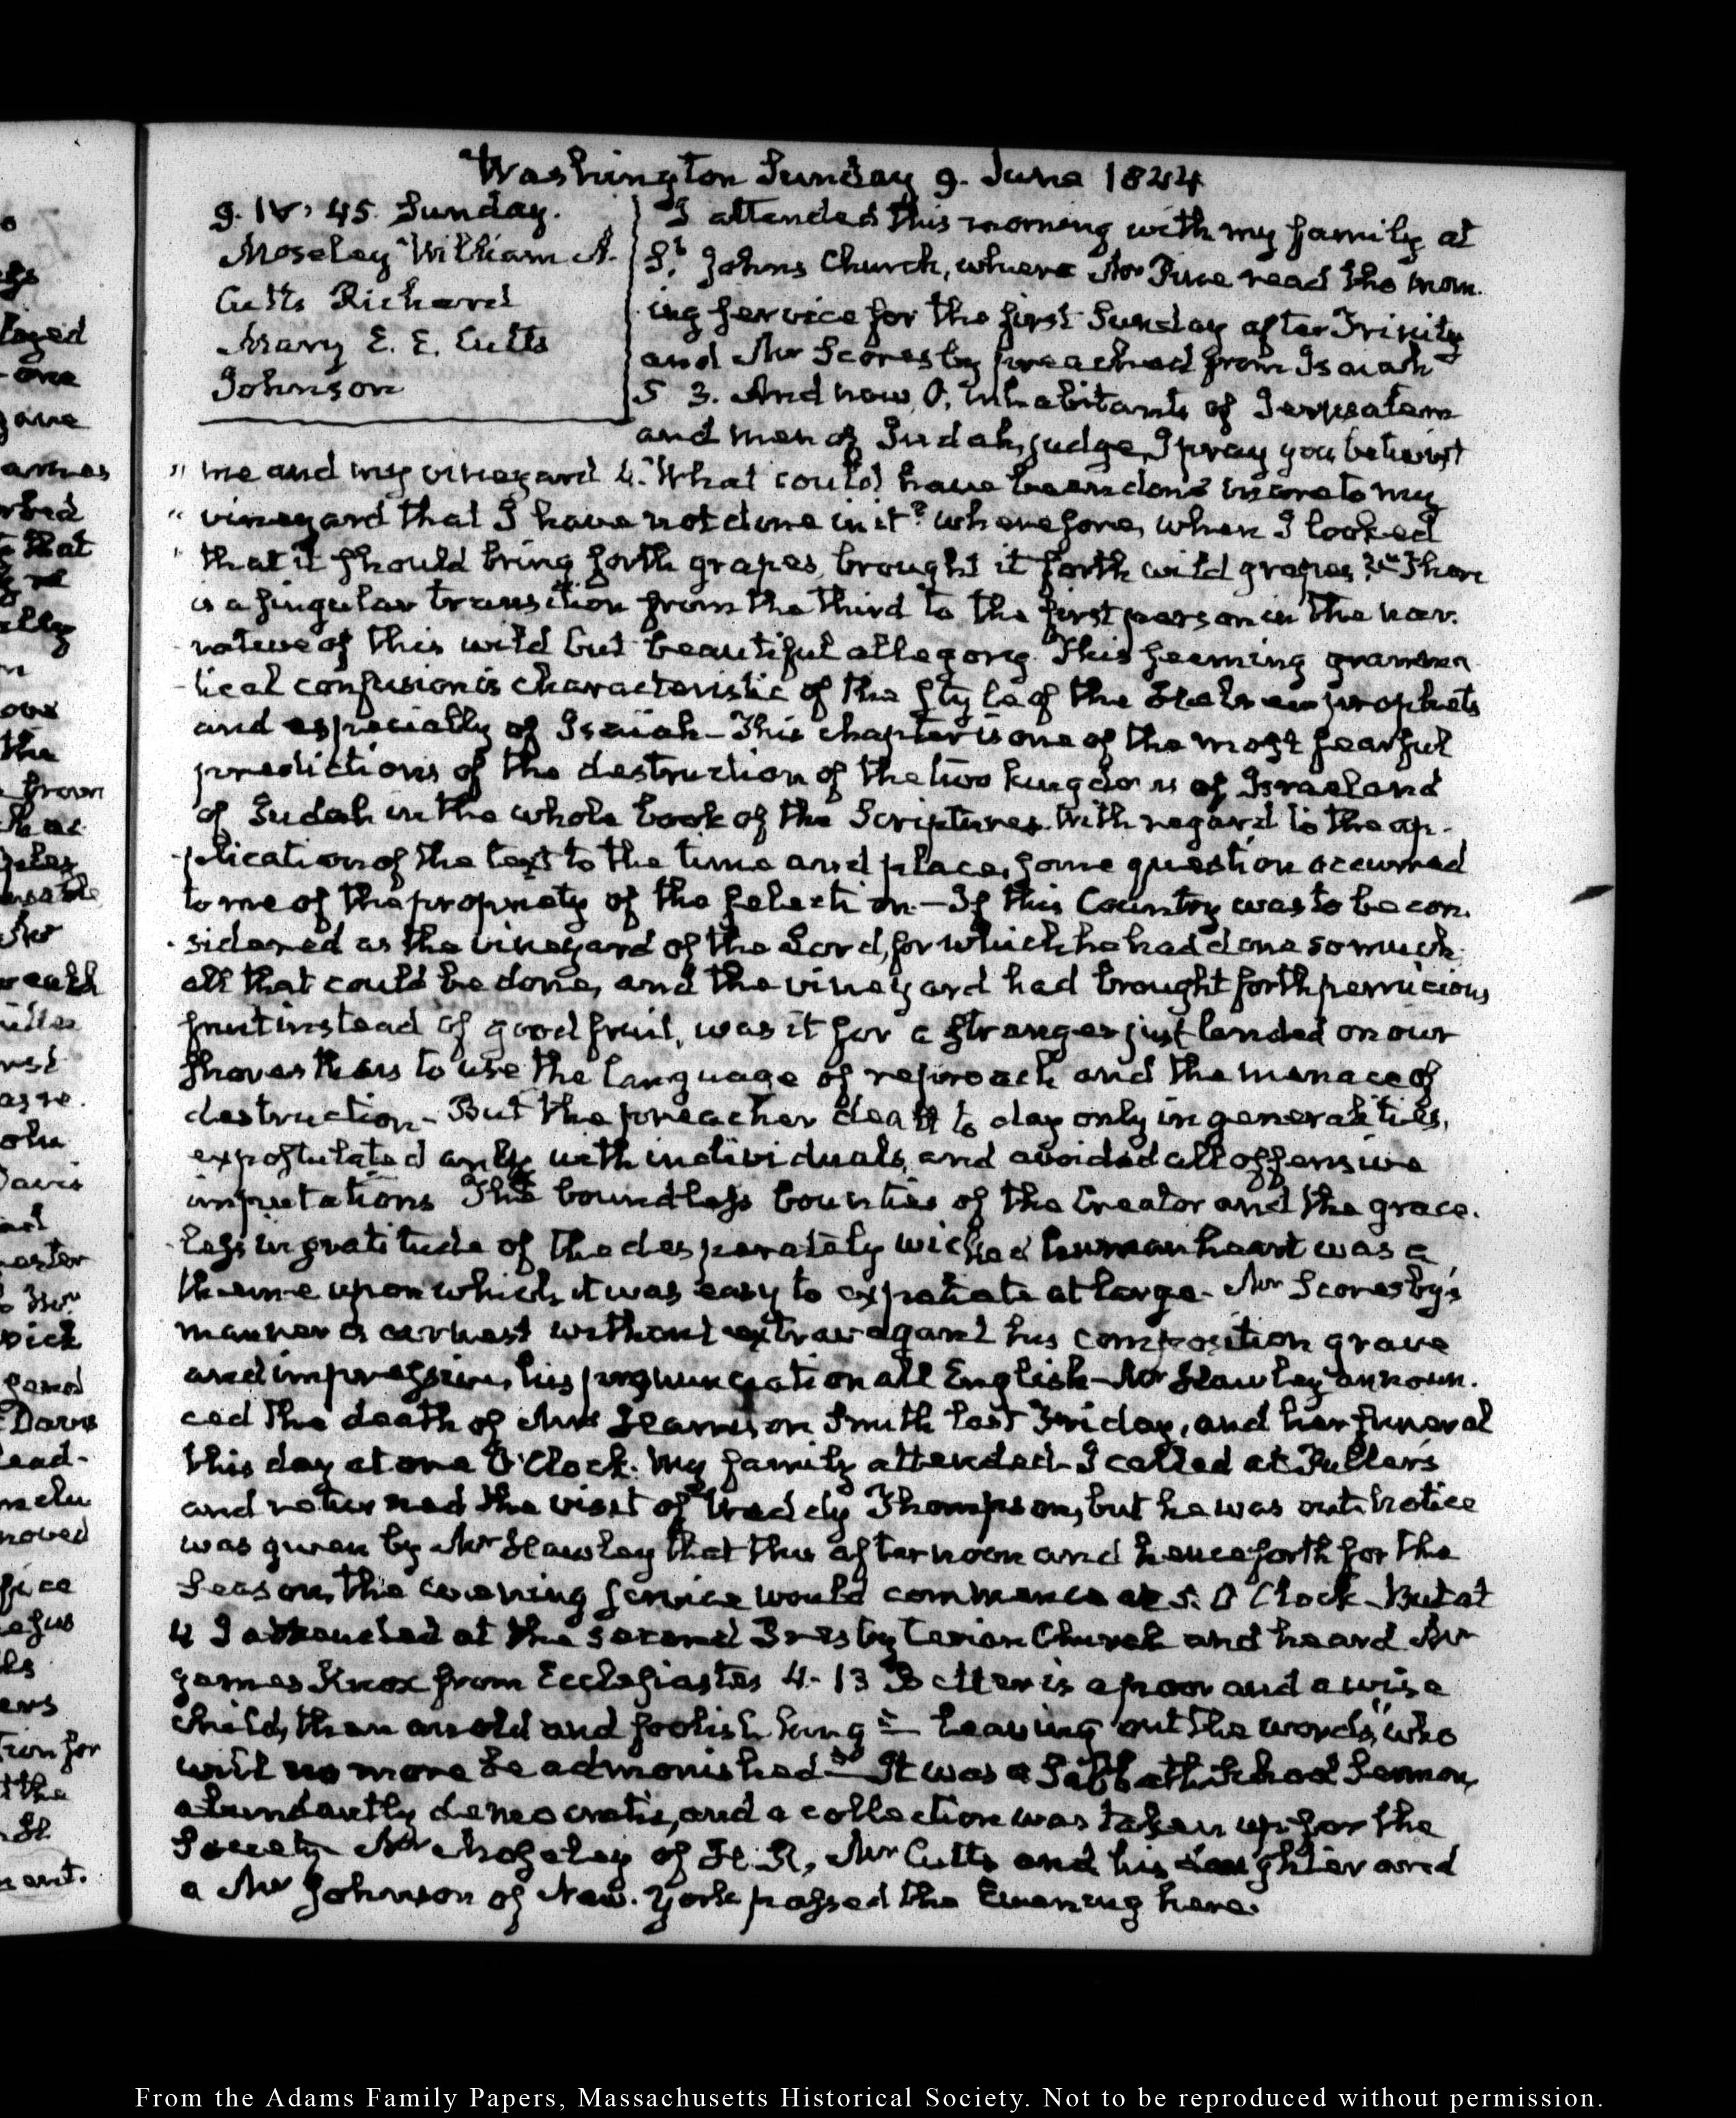 Washington Sunday 9. June 1844
9. IV. 45. Sunday.
Moseley William A.
Cutts Richard
Mary E. E. Cutts
Johnson
I attended this morning with my family at
St. Johns Church, where Mr Pine read the morn-
ing service for the first Sunday after Trinity
and Mr Scoresby preached from Isaiah
5 3. And now, O, inhabitants of Jerusalem
and men of Judah, judge, I pray you betwixt
" me and my vineyard 4. "What could have been done more to my
" vineyard that I have not done in it? wherefore, when I looked
" that it should bring forth grapes, brought it forth wild grapes?" There
is a singular transition from the third to the first person in the nar-
rative of this wild but beautiful allegory. This seeming gramma-
tical confusion is characteristic of the style of the Hebrew prophets
and especially of Isaiah - This chapter is one of the most fearful
predictions of the destruction of the two kingdoms of Israel and
of Judah in the whole book of the Scriptures. With regard to the ap-
-plication of the text to the time and place, some question occurred
to me of the propriety of the selection. - If this Country was to be con-
-sidered as the vineyard of the Lord, for which he had done so much
all that could be done, and the vineyard had brought forth pernicious
fruit instead of good fruit, was it for a stranger just landed on our
shores thus to use the language of reproach and the menace of
destruction - But the preacher dealt to day only in generalities,
expostulated only with individuals, and avoided all offensive
imputations The boundless bounties of the Creator and the grace-
-less ingratitude of the desperately wicked human heart was a
theme upon which it was easy to expatiate at large - Mr Scoresby's
manner is earnest without extravagant his composition grave
and impressive, his pronunciation all English - Mr Hawley announ-
ced the death of Mrs Harrison Smith last Friday, and her funeral
this day at one O'Clock. My family attended - I called at Fuller's
and returned the visit of Waddy Thompson, but he was out. Notice
was given by Mr Hawley that this afternoon and henceforth for the
season, the evening service would commence at 5. O Clock - But at
4 I attended at the second Presbyterian Church and heard Mr
James Knox from Ecclesiastes 4-13 Better is a poor and a wise
child, than an old and foolish king = leaving out the words, "who
will no more be admonished" - It was a Sabbath School Sermon,
abundantly democratic, and a collection was taken up for the
Society - Mr Moseley of H. R, Mr Cutts and his daughter and
a Mr Johnson of New-York passed the Evening here.
From the Adams Family Papers, Massachusetts Historical Society. Not to be reproduced without permission.